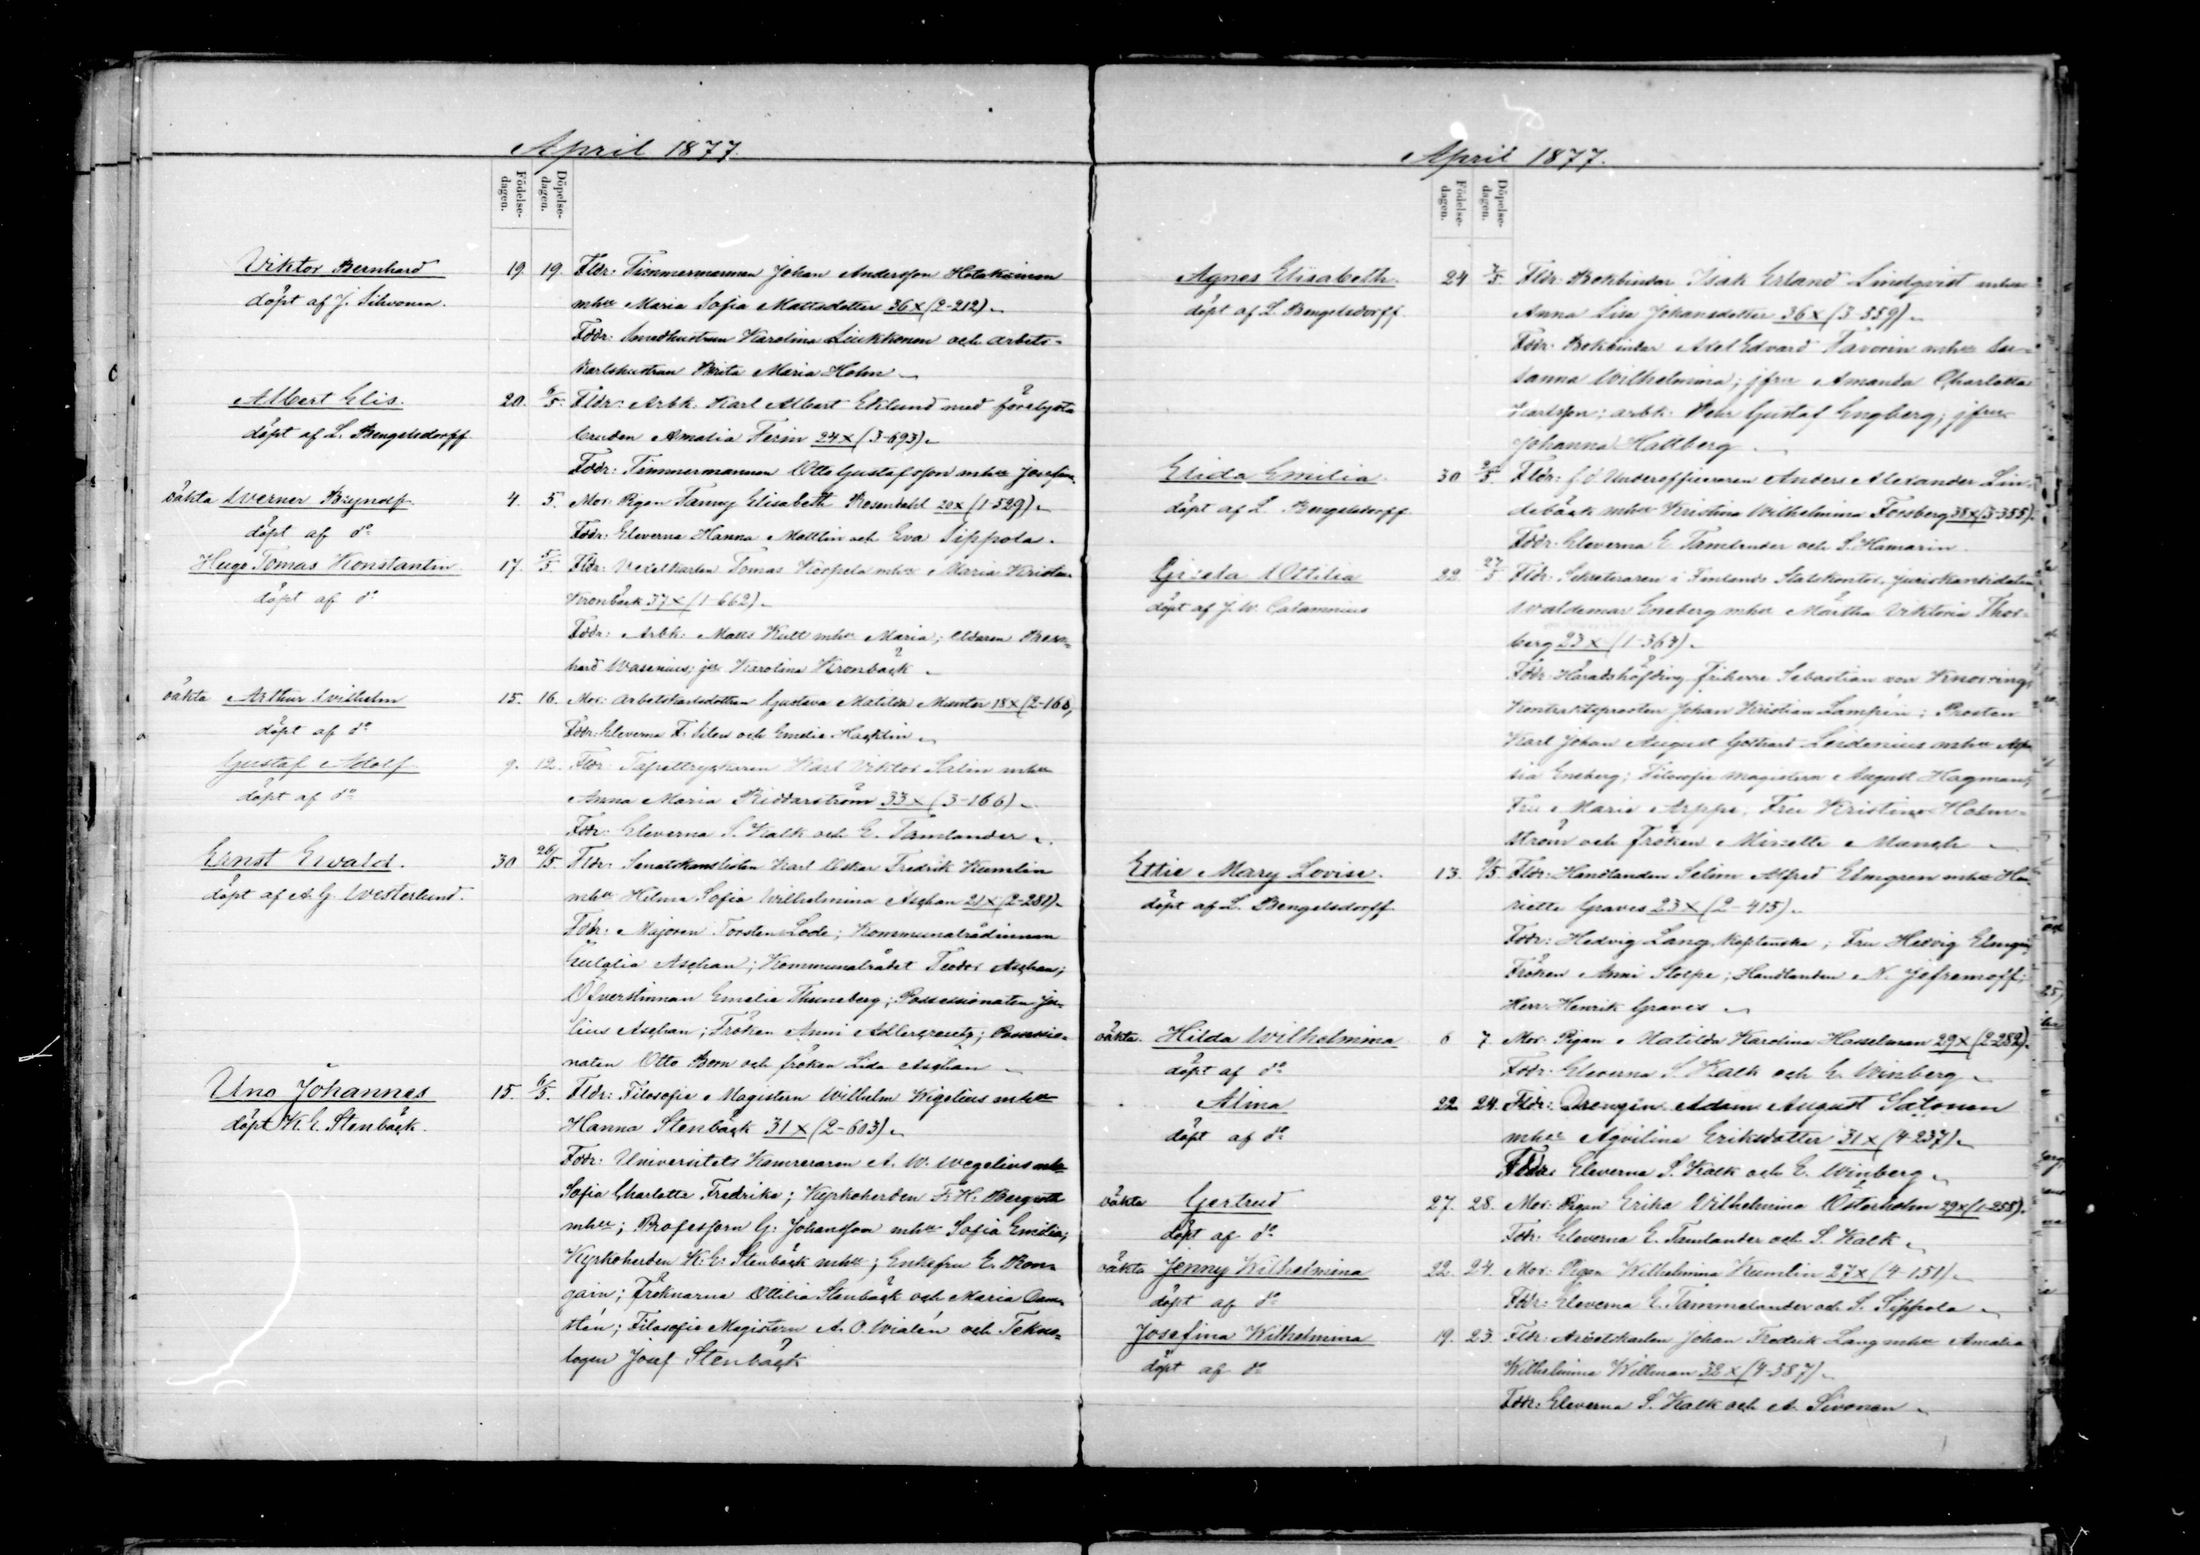 April 1877.
Födelse-dagen. Döpelse-dagen.
Viktor Bernhard 19. 19. Fldr: Timmermannen Johan Andersson Hotakainen
döpt af J. Silvonen. mhu Maria Sofia Mattsdotter 36x (2-212)
Fddr: Smedhustrun Karolina Liukkonen och arbets-
karlshustrun Brita Maria Holm
Albert Elis. 20. 6/5. Fldr: Arbk. Karl Albert Eklund med förelysta
döpt af L. Bengelsdorff bruden Amalia Ferin 24x (3-693)
Fddr: Timmermannen Otto Gustafsson mhu Josefina
oäkta Werner Bryndf 4. 5. Mor: Pigan Fanny Elisabeth Rosendahl 20x (1-529)
döpt af do Fddr: Eleverna Hanna Mattlin och Eva Sippola.
Hugo Tomas Konstantin 17. 5/5. Fldr: Vexelkarlen Tomas Koopela mhu Maria Kristina
döpt af do Kronbäck 37x (1-662)
Fddr: Arbk: Matts Kutt mhu Maria; Eldaren Bern-
hard Wasenius; jfr Karolina Kronbäck
oäkta Arthur Wilhelm 15. 16. Mor: Arbetskarlsdottren Gustava Matilda Munter 18x (2-166)
döpt af do Fddr: Eleverna F. Silen och Emelie Hacklin
Gustaf Adolf 9. 12. Fldr: Tapettryckaren Karl Viktor Salin mhu
döpt af do Anna Maria Riddarström 33x (3-166)
Fddr: Eleverna S. Kalk och E. Tamlander
Ernst Ewald. 30 26/5. Fldr: Senatskanslisten Karl Oskar Fredrik Kumlin
döpt af A. G. Westerlund. mhu Hilma Sofia Wilhelmina Aschan 21x (2-281)
Fddr: Majoren Torsten Lode; Kommunalrådinnan
Eulalia Aschan; Kommunalrådet Teodor Aschan;
Öfverstinnan Emelie Thuneberg; Possessionaten Ju-
lius Aschan; Fröken Anni Adlercreutz; Possessio-
naten Otto Bom och fröken Lida Aschan
Uno Johannes 15. 6/5. Fldr: Filosofie Magistern Wilhelm Wigelius mhu
döpt K. E. Stenbäck. Hanna Stenbäck 31x (2-603)
Fddr: Universitets Kamreraren A. W. Wegelius mhu
Sofia Charlotta Fredrika; Kyrkoherden F. H. Bergroth
mhu; Professorn G. Johansson mhu Sofia Emilia;
Kyrkoherden K. E. Stenbäck mhu; Enkefru E. Bon-
gain; Fröknarna Ottilia Stenbäck och Maria Dam-
stén; Filosofie Magistern A. O. Wialén och Tekno-
logen Josef Stenbäck
April 1877.
Födelse-dagen. Döpelse-dagen.
Agnes Elisabeth. 24 7/5. Fldr: Bokbindar Isak Erland Lindqvist mhu
döpt af L. Bengelsdorff. Anna Lisa Johansdotter 36x (3-559)
Fddr: Bokbindar Axel Edvard Favorin mhu Su-
sanna Wilhelmina; jfru Amanda Charlotta
Karlsson; arbk. Pehr Gustaf Engberg; jfru
Johanna Hallberg
Elida Emilia. 30 9/5. Fldr: f.d. Underofficeraren Anders Alexander Lin-
döpt af L. Bengelsdorff debäck mhu Kristina Wilhelmina Forsberg 38x (3-355)
Fddr: Eleverna E Tamlander och S. Hamarin.
Griselda Ottilia 22 27/5 Fldr: Sekreteraren i Finlands Statskontor, juriskandidaten
döpt af J. W. Calamnius Waldemar Eneberg mhu Märtha Viktoria Thor-
berg 23x (1-363)
Fddr: Häradshöfding friherre Sebastian von Knorring,
Kontraktsprosten Johan Kristian Lampén; Prosten
Karl Johan August Gothard Lindenius mhu Aspa-
sia Eneberg; Filosofie magistern August Hagman;
Fru Maria Arppe; Fru Kristina Holm-
ström och fröken Minette Munch
Ettie Mary Lovise. 13. 9/5. Fldr: Handlanden Selim Alfred Elmgren mhu Hen-
döpt af L. Bengelsdorff riette Graves 23x (2-415)
Fddr: Hedvig Lang, kaptenska; Fru Hedvig Elmgren;
Fröken Anni Stolpe; Handlanden N. Jefremoff;
Herr Henrik Graves
oäkta. Hilda Wilhelmina 6 7. Mor: Pigan Matilda Karolina Hasselman 29x (2-282)
döpt af do Fddr: Eleverna S. Kalk och E. Winberg
Alina 22 24. Fldr: Drengen Adam August Salonen
döpt af do mhu Aqvilina Eriksdotter 31x (4-237)
Fddr: Eleverna S. Kalk och E. Winberg
oäkta Gertrud 27. 28. Mor: Pigan Erika Wilhelmina Österholm 29x (1-255)
döpt af do Fddr: Eleverna E. Tamlander och S. Kalk
oäkta Jenny Wilhelmina 22. 24. Mor: Pigan Wilhelmina Kumlin 27x (4-151)
döpt af do Fddr: Eleverna E. Tammelander och S. Sippola
Josefina Wilhelmina 19. 23. Fldr: Arbetskarlen Johan Fredrik Lang mhu Amalia
döpt af do Wilhelmina Willman 32x (4-587)
Fddr: Eleverna S. Kalk och A. Sivonen